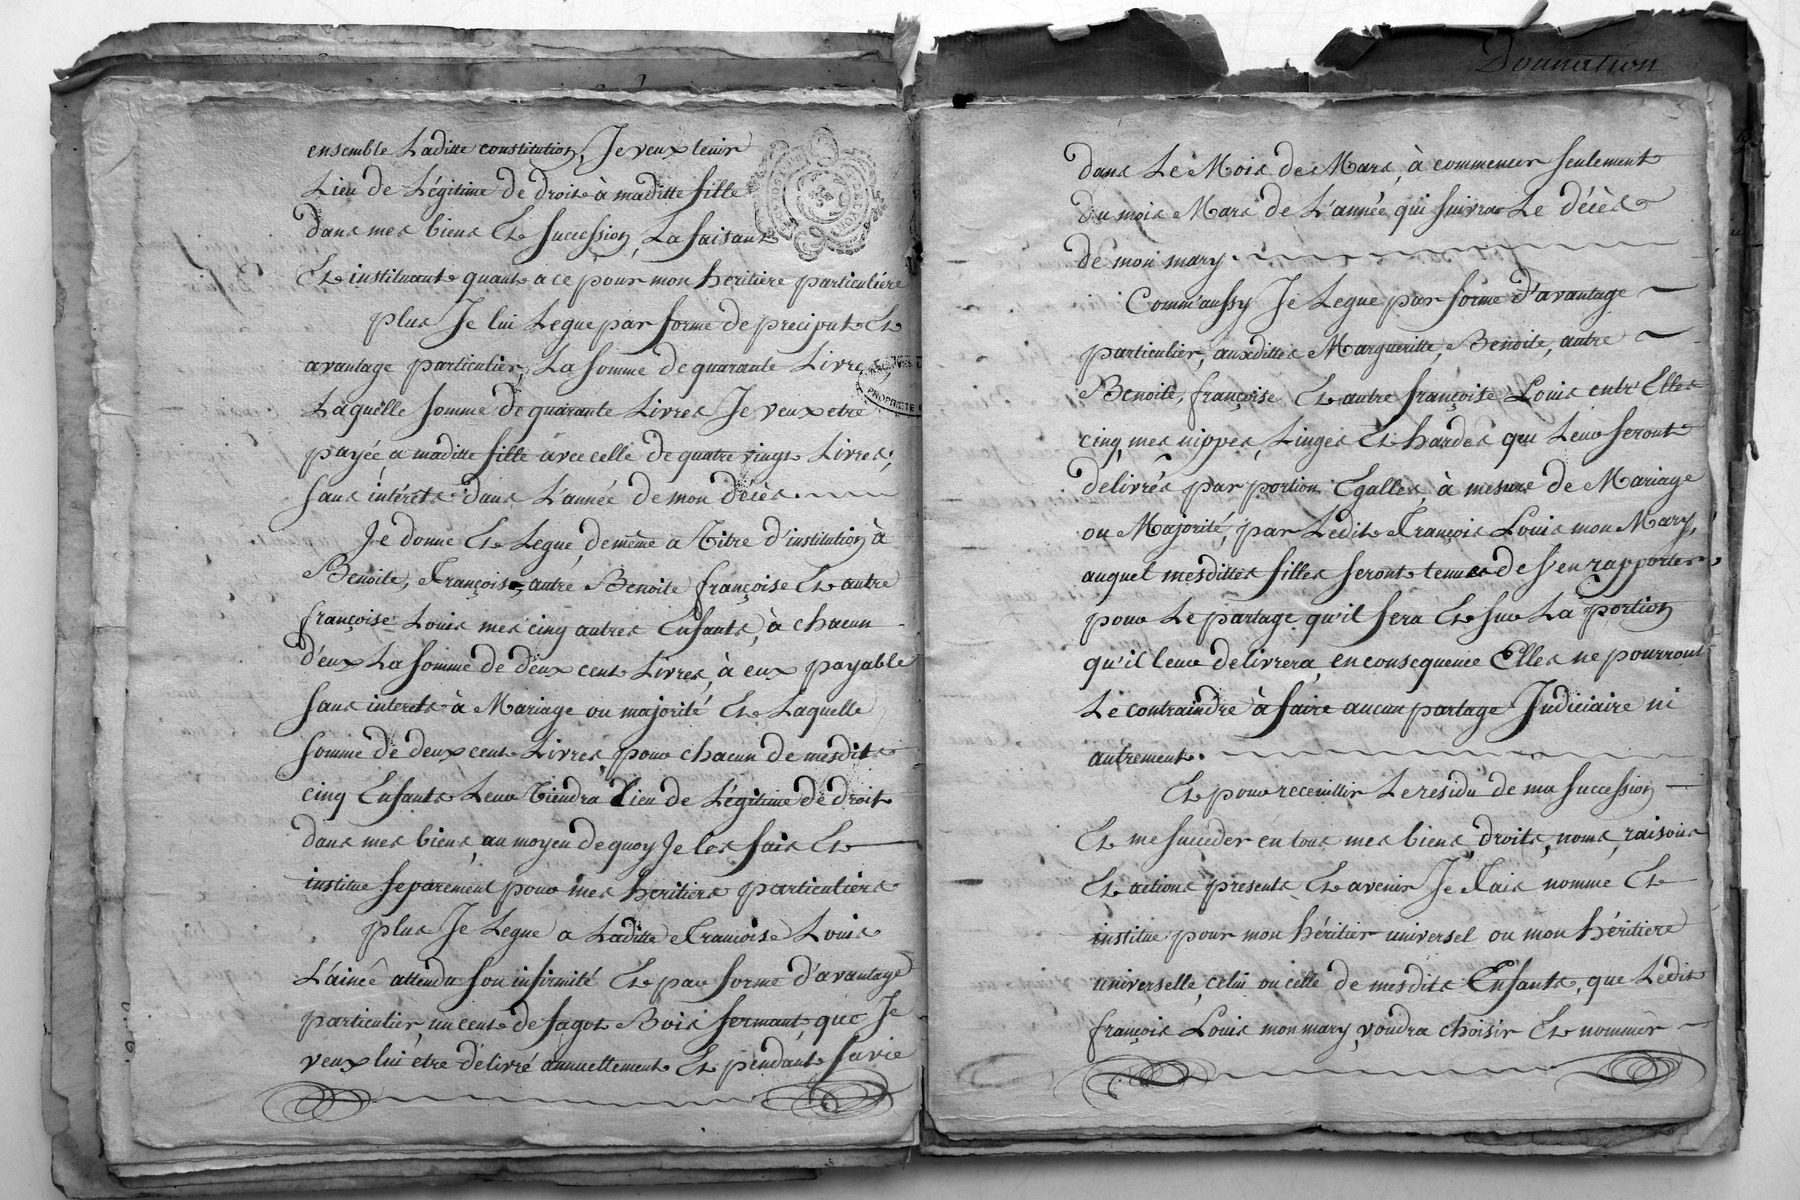 ensemble Laditte constitution, Je veux tenir
Lieu de Légitime de droit à maditte fille
dans mes biens Et Succession, La faisant
Et instituant quant a ce pour mon heritiere particuliére
plus Je lui Legue par forme de preciput Et
avantage particulier, La somme de quarante Livres,
Laquelle somme de quarante Livres Je veux etre
payée a maditte fille avec celle de quatre vingt Livres,
sans intérêts dans L'année de mon décès.
Je donne Et Legue, de même a Titre d'institution à
Benoite, Françoise, autre Benoite françoise Et autre
françoise Louis mes cinq autres Enfants, à chacun
d'eux La somme de deux cent Livres, à eux payable
sans interets à Mariage ou majorité Et Laquelle
somme de deux cent Livres, pour chacun de mesdits
cinq Enfants Leur Tiendra Lieu de Légitime de droit
dans mes biens, au moyen de quoy Je les fais Et
institue separément pour mes heritiers particuliers
plus Je Legue a Laditte Françoise Louis
L'ainée attendu son infirmité Et par forme d'avantage
particulier, un cent de fagot Bois fermant, que Je
veux lui être délivré annuellement Et pendant sa vie
Donnation
dans Le Mois de Mars, à commencer seulement
du mois Mars de L'année qui suivra Le décès
de mon mary.
Comm'aussy Je Legue par forme d'avantage
particulier, auxdittes Margueritte, Benoite, autre
Benoite, françoise Et autre françoise Louis entr'Elles
cinq, mes nippes, Linges Et hardes qui Leur seront
délivrés par portion Egalles, à mesure de Mariage
ou Majorité, par Ledit François Louis mon Mary,
auquel mesdittes filles seront tenues de s'en rapporter
pour Le partage qu'il fera Et sur La portion
qu'il leur delivrera, en consequence Elles ne pourront
Le contraindre à faire aucun partage Judiciaire ni
autrement.
Et pour recueillir Le residu de ma succession
Et me succeder en tous mes biens, droits, noms, raisons
Et actions presents Et avenir Je Fais nomme Et
institue pour mon héritier universel ou mon héritiere
universelle, celui ou celle de mesdits Enfants, que Ledit
françois Louis mon mary, voudra choisir Et nommer